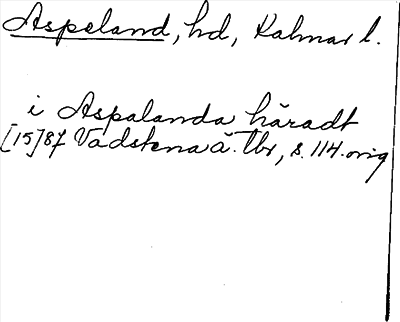 Aspeland, hd, Kalmar l.
i Aspalanda häradt
[15]87 Vadstena ä. tbr, s. 114. orig